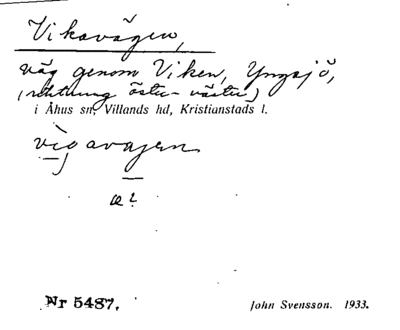 Vikavägen,
väg genom Viken, Yngsjö,
(riktning öster - väster)
i Åhus sn, Villands hd, Kristianstads l.
vigavajen
æ?
Nr 5487.
John Svensson. 1933.